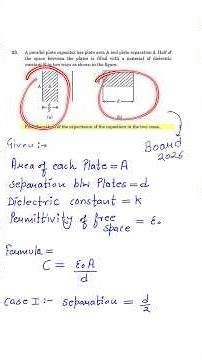 23. A parallel plate capacitor has plate area A and plate separation d. Half of
the space between the plates is filled with a material of dielectric
constant K in two ways as shown in the figure.
A
d
(a)
(b)
Find the ratio of the capacitance of the capacitors in the two cases.
Board
2025
Given :-
Area of each Plate = A
separation b/w Plates = d
Dielectric constant = K
Permittivity of free space = ε₀
Formula =
C = ε₀A / d
Case I :- separation = d/2